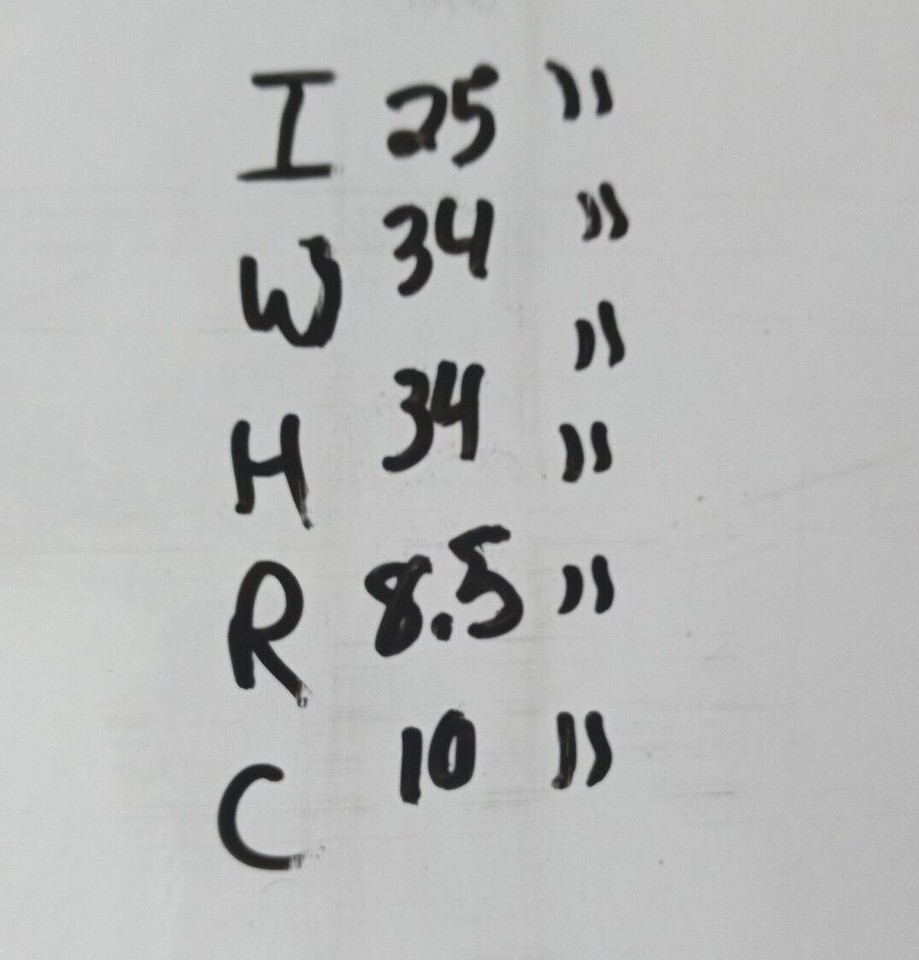 I 25 "
W 34 "
"
H 34 "
R 8.5 "
C 10 "